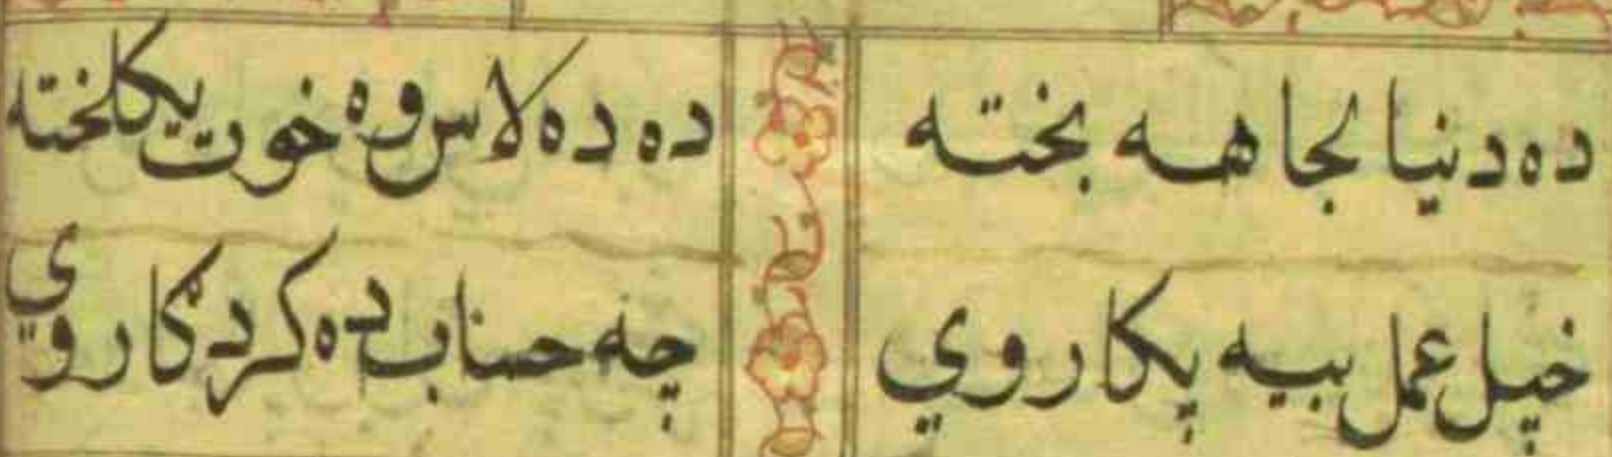 ده دنیا بجا هه بخته ده ده لاس وه خوت یکلخته
خپل عمل ییه پکار وي چه حساب ده کردکار وي